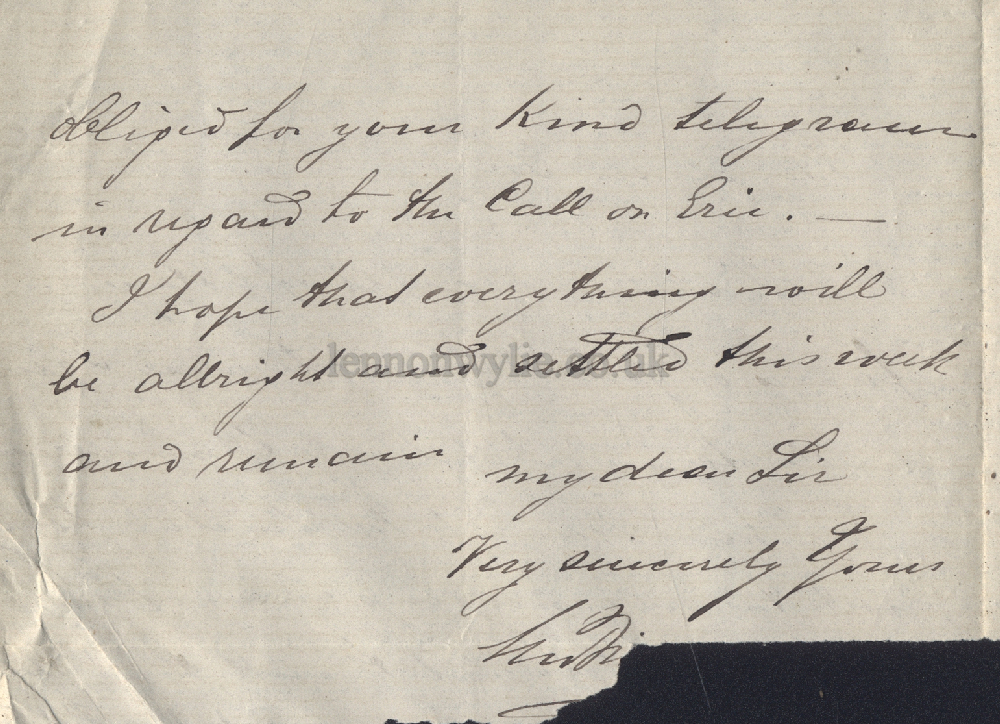 obliged for your Kind telegram
in regard to the Call on Erie. —
I hope that everything will
be allright and settled this week
lennonwylie.co.uk
and remain
my dear Sir
Very sincerely Yours